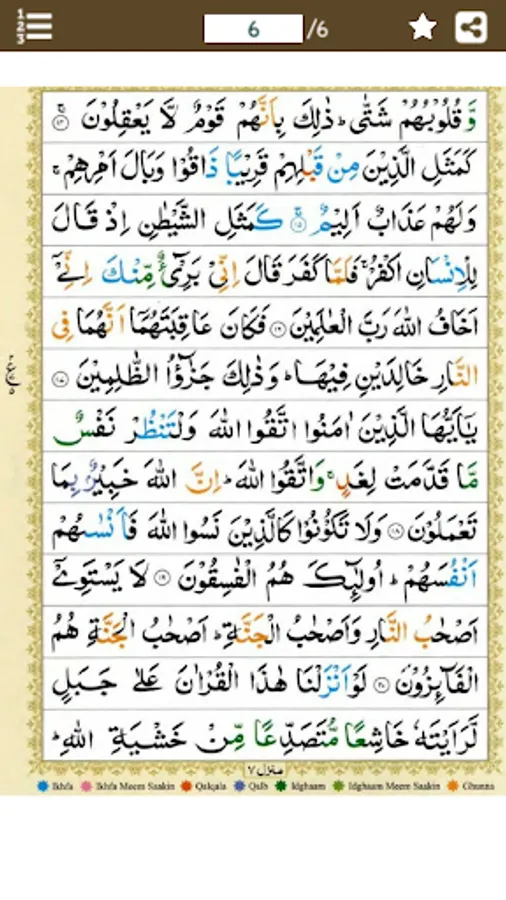 6 /6
وَّ قُلُوْبُهُمْ شَتّٰى ؕ ذٰلِكَ بِاَنَّهُمْ قَوْمٌ لَّا يَعْقِلُوْنَ ۚ‏﴿۱۴﴾
كَمَثَلِ الَّذِيْنَ مِنْ قَبْلِهِمْ قَرِيْبًا ذَاقُوْا وَبَالَ اَمْرِهِمْ ۚ
وَلَهُمْ عَذَابٌ اَلِيْمٌ ۚ‏﴿۱۵﴾ كَمَثَلِ الشَّيْطٰنِ اِذْ قَالَ
لِلْاِنْسَانِ اكْفُرْ ۚ فَلَمَّا كَفَرَ قَالَ اِنِّىْ بَرِىْٓءٌ مِّنْكَ اِنِّىْٓ
اَخَافُ اللّٰهَ رَبَّ الْعٰلَمِيْنَ ‏﴿۱۶﴾ فَكَانَ عَاقِبَتَهُمَاۤ اَنَّهُمَا فِى
النَّارِ خَالِدَيْنِ فِيْهَا ؕ وَ ذٰلِكَ جَزٰٓؤُا الظّٰلِمِيْنَ ‏﴿۱۷﴾
يٰۤاَيُّهَا الَّذِيْنَ اٰمَنُوا اتَّقُوا اللّٰهَ وَلْتَنْظُرْ نَفْسٌ
مَّا قَدَّمَتْ لِغَدٍ ۚ وَاتَّقُوا اللّٰهَ ؕ اِنَّ اللّٰهَ خَبِيْرٌۢ بِمَا
تَعْمَلُوْنَ ‏﴿۱۸﴾ وَلَا تَكُوْنُوْا كَالَّذِيْنَ نَسُوا اللّٰهَ فَاَنْسٰٮهُمْ
اَنْفُسَهُمْ ؕ اُولٰٓٮِٕكَ هُمُ الْفٰسِقُوْنَ ‏﴿۱۹﴾ لَا يَسْتَوِىْۤ
اَصْحٰبُ النَّارِ وَاَصْحٰبُ الْجَنَّةِ ؕ اَصْحٰبُ الْجَنَّةِ هُمُ
الْفَآٮِٕزُوْنَ ‏﴿۲۰﴾ لَوْ اَنْزَلْنَا هٰذَا الْقُرْاٰنَ عَلٰى جَبَلٍ
لَّرَاَيْتَهٗ خَاشِعًا مُّتَصَدِّعًا مِّنْ خَشْيَةِ اللّٰهِ ؕ
منزل ۷
Ikhfa Ikhfa Meem Saakin Qalqala Qalb Idghaam Idghaam Meem Saakin Ghunna